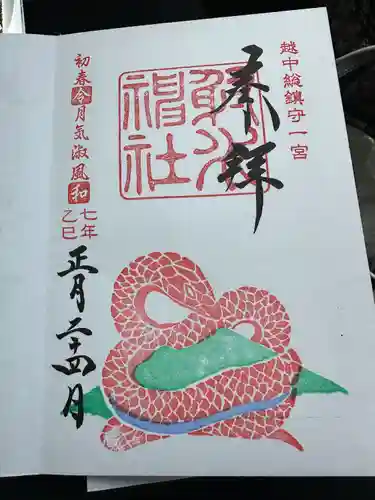 越中総鎮守一宮
奉拝
射水
神社
初春令月気淑風和
七年
乙巳
正月二十四日